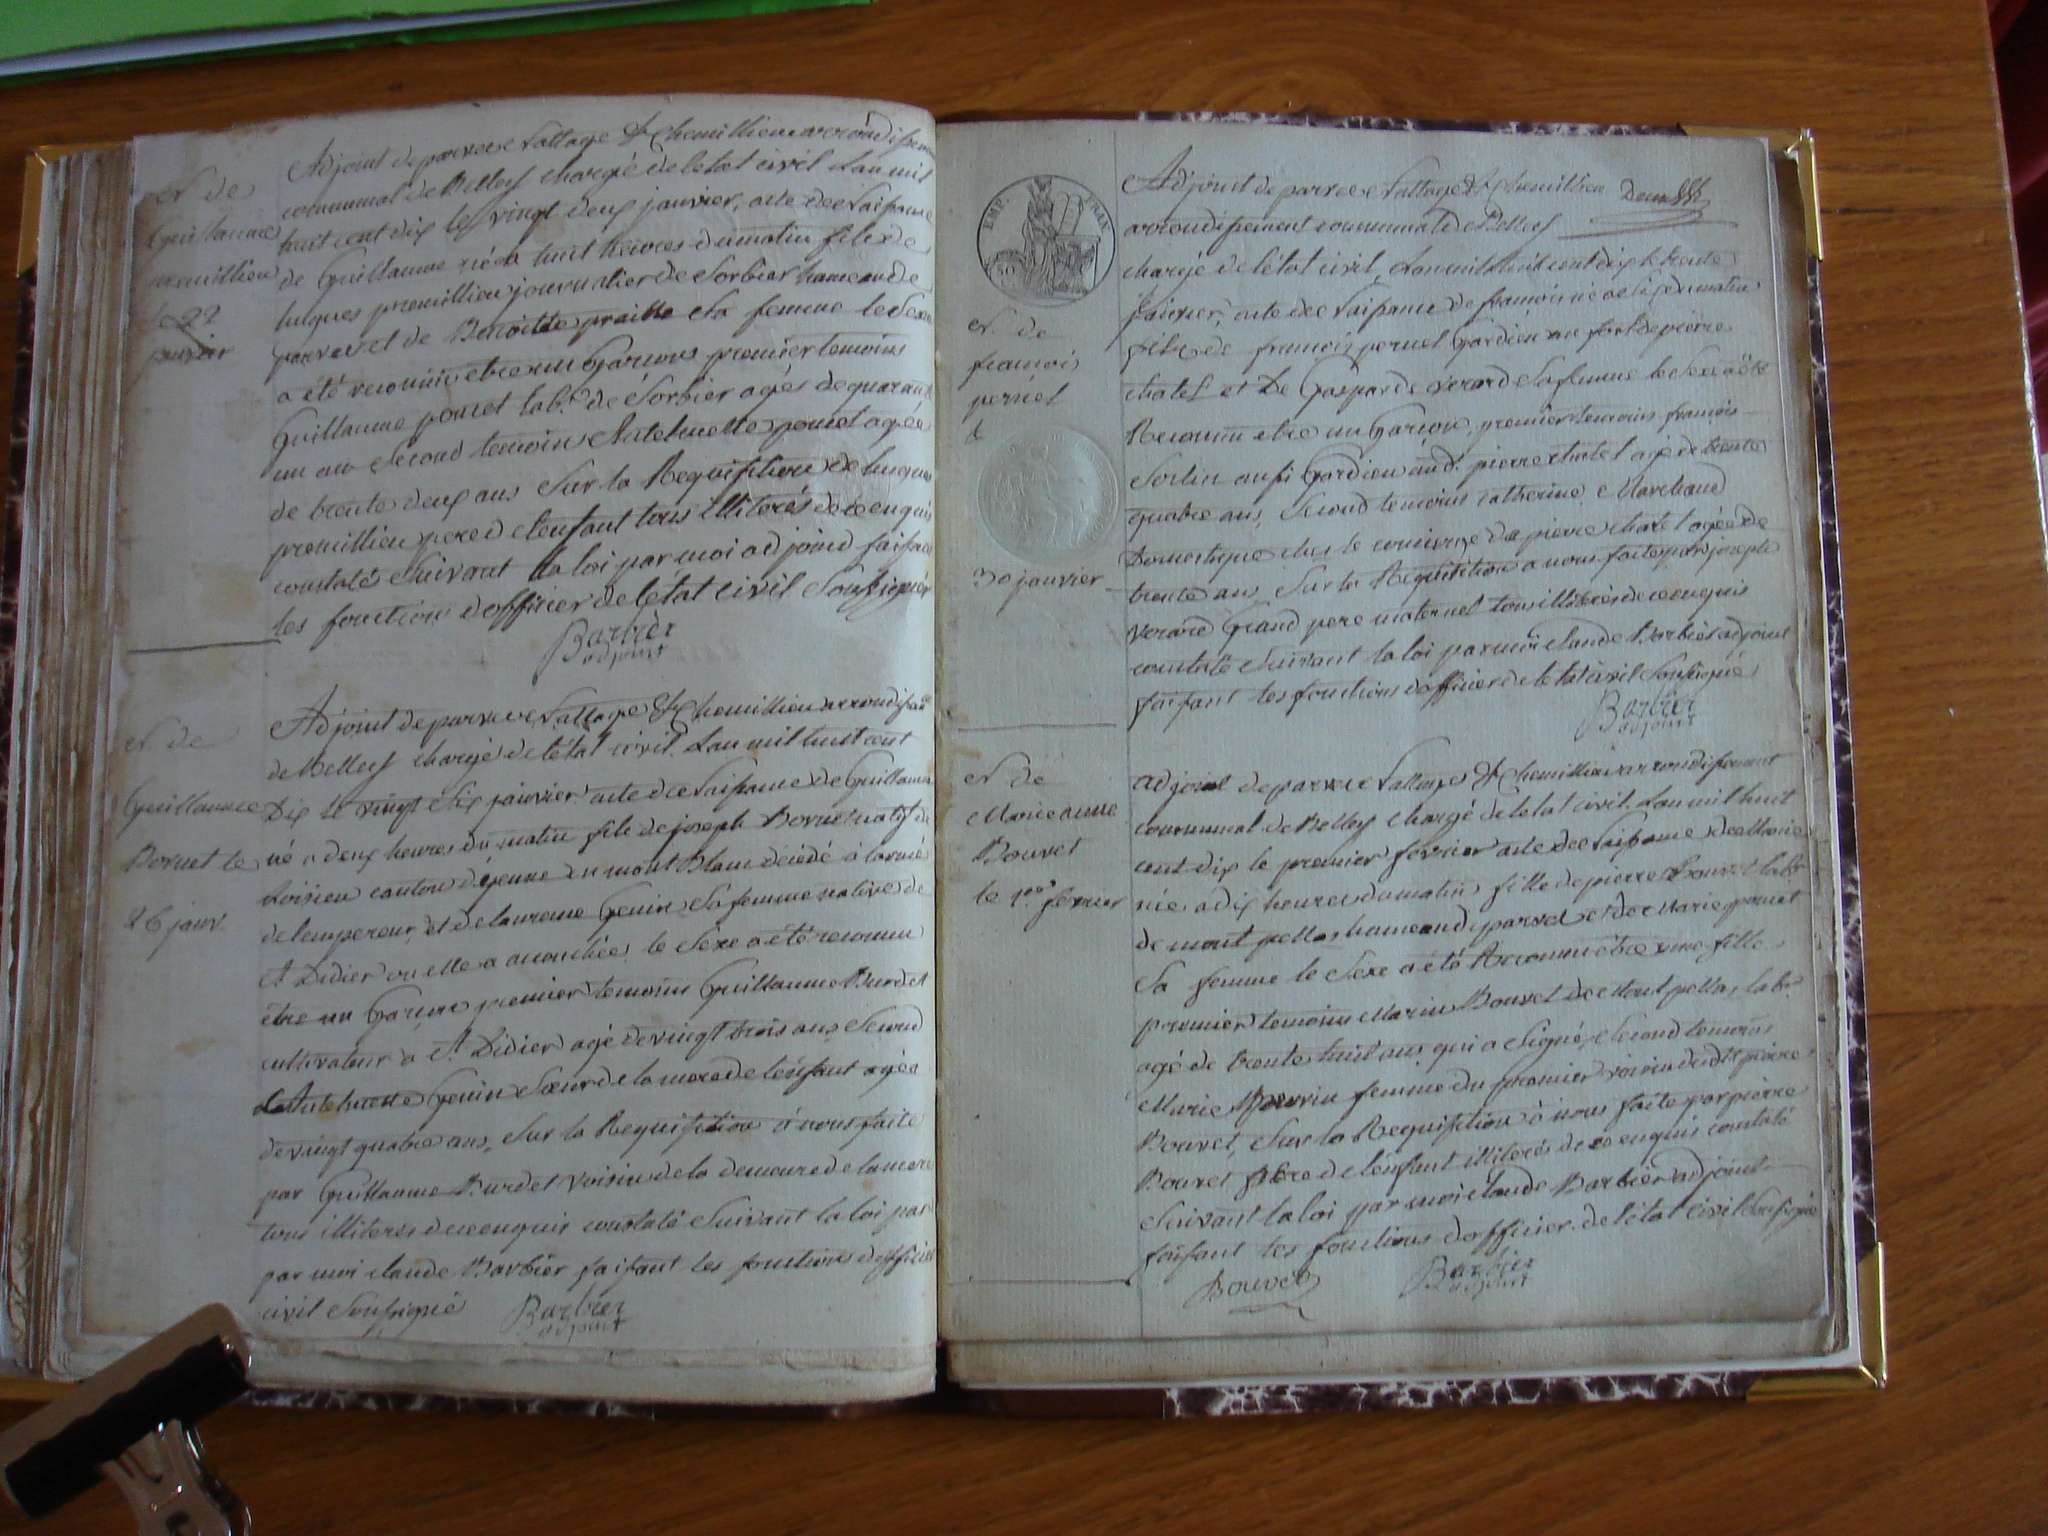 N. de
Guillaume
premillieu
le 22
janvier
Adjoint de parves Nattage & Chemillieu
communal de Belley chargé de letat civil Lan mil
huit cent dix le vingt deux janvier, acte de naissance
de Guillaume né à huit heures du matin fils de
premillieu journalier de Sorbier hameau de
parves et de Benoitte praille sa femme le Sexe
a été reconnu etre un Garcons premier temoins
Guillaume poncet lab.r de Sorbier agés de quarante
un ans Second temoin Antelmette poncet agée
de trente deux ans Sur la Requisition de
premillieu pere de lenfant tous illiterés de ce enquis
constaté Suivant la loi par moi adjoind faisant
les fonction dofficier de letat civil Soussigné
Barbier
adjoint
N. de
Guillaume
Bornet le
26 janv.
Adjoint de parves Nattage & Chemillieu
de Belley chargé de létat civil. Lan mil huit cent
Dix le vingt Six janvier acte de Naissance de Guillaume
né a deux heures du matin fils de joseph Bornet natif de
canton en mont Blanc décédé à larmé
de lempereur, et de laurence Genin Sa femme native de
St Didier ou elle a accouchée le Sexe a été reconnu
être un Garçon premier temoins Guillaume Burdet
cultivateur a St Didier agé de vingt trois ans Second
Antelmette Genin Sœur de la mere de lénfant agée
de vingt quatre ans, Sur la Requisition à nous faite
par Guillaume Burdet voisin de la demeure de la mere
tous illiterés de ce enquis constaté Suivant la loi par
par moi claude Barbier faisant les fonctions dofficier
civil Soussigné
Barbier
adjoint
EMP. FRAN
50
N. de
francois
pernel
le
30 janvier
Adjoint de parves Nattage & Chemillieu
arrondissement communal de Belley
chargé de létat civil, Lan mil huit cent dix le trente
janvier, acte de Naissance de francois né a Six du matin
fils de francois pernel Gardien au fort de pierre
chatel et De Gasparde verard Sa femme le Sexe a été
Reconnu etre un Garçon, premier temoins francois
Sorlin aussi Gardien aud. pierre chatel agé de trente
quatre ans, Second temoins catherine Marchand
Domestique ches le concierge de pierre chatel agée de
trente ans, Sur la Requisition a nous faite par joseph
verard Grand pere maternel tous illiterés de ce enquis
constaté Suivant la loi par moi claude Barbier adjoint
faisant les fonctions dofficier de letat civil Soussigné
Barbier
adjoint
N. de
Marie anne
Bouvet
le 1.er fevrier
adjoint de parves Nattage & Chemillieu arrondissement
communal de Belley chargé de letat civil. Lan mil huit
cent dix le premier fevrier acte de Naissance de Marie
née à dix heures du matin fille de pierre Bouvet lab.r
de mont pellas hameau de parves et de Marie
Sa femme le Sexe a été Reconnu être une fille
premier temoins Marin Bouvet de Mont pellas, lab.r
agé de trente huit ans qui a Signé, Second temoins
Marie femme du premier voisin dudit pierre
Bouvet, Sur la Requisition à nous faite par pierre
Bouvet pere de lenfant illiterés de ce enquis constaté
Suivant la loi par moi claude Barbier adjoint
faisant les fonctions dofficier de létat civil Soussigné
Bouvet
Barbier
adjoint